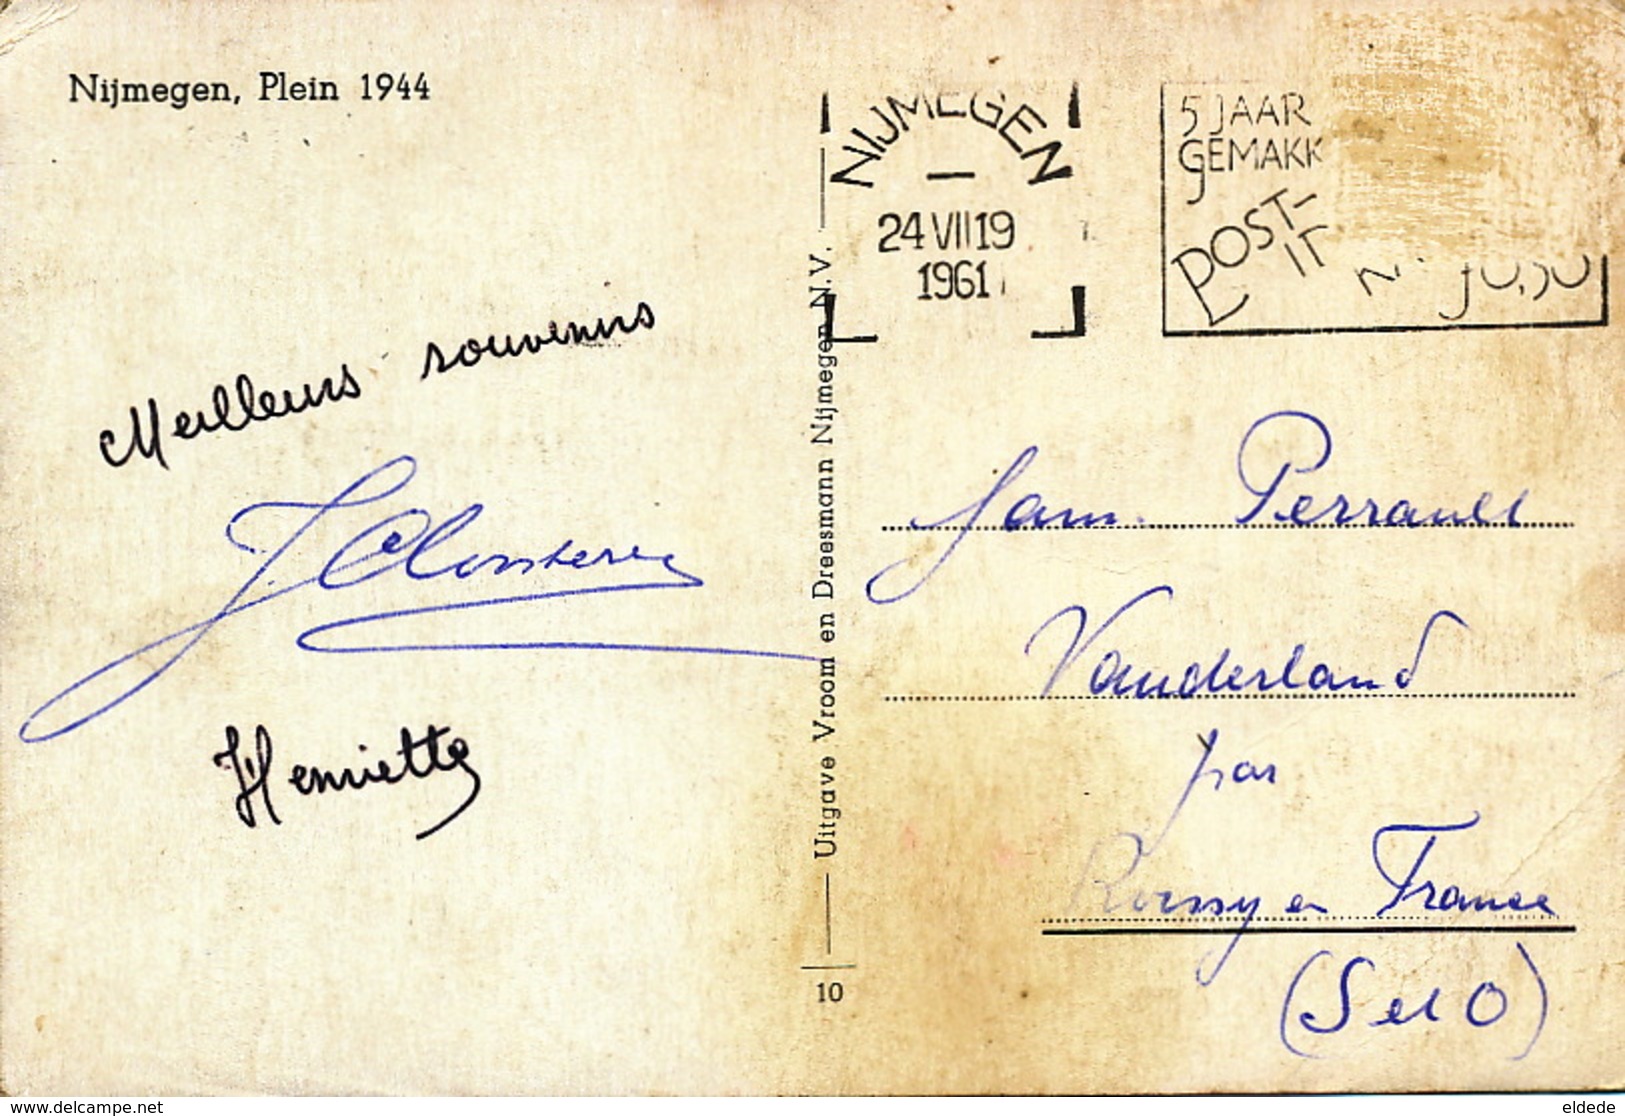 Nijmegen, Plein 1944
NIJMEGEN
24 VII 19
1961
5 JAAR
GEMAKK
POST-
Meilleurs souvenirs
Henriette
Uitgave Vroom en Dreesmann Nijmegen N.V.
10
fam. Perrault
Vauderland
par
Roissy en France
(S et O)
www.delcampe.net
eldede